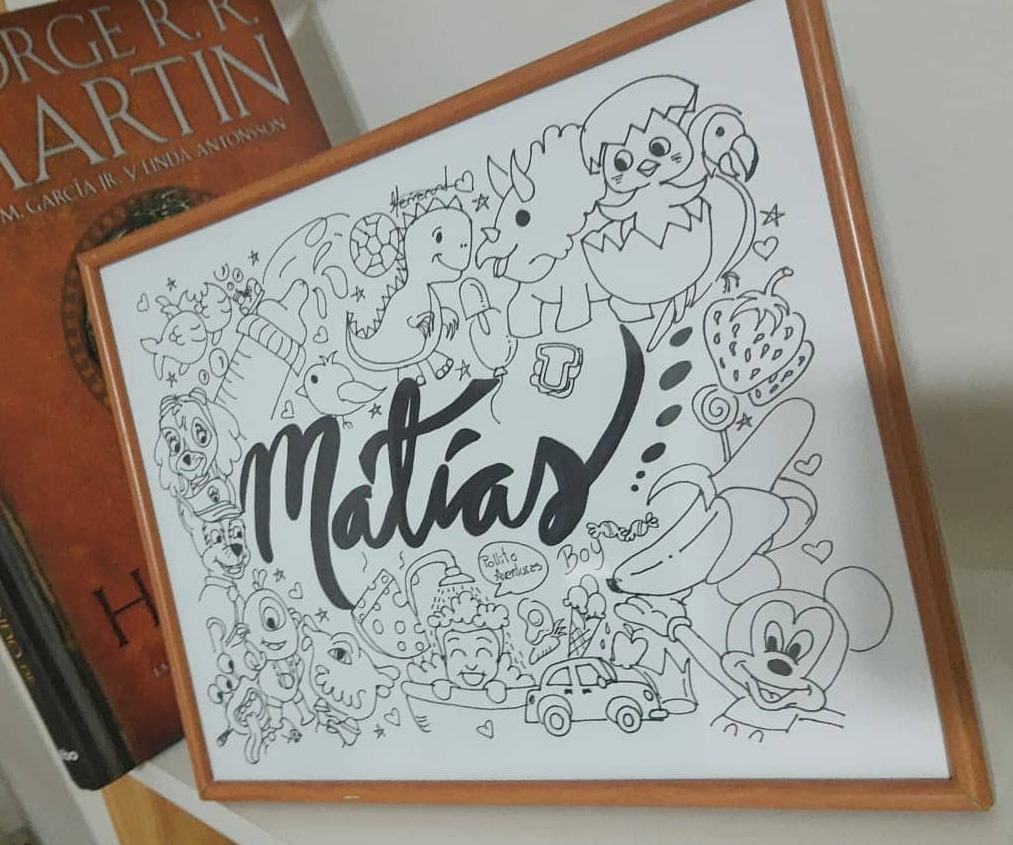 ORGE R. R.
MARTIN
M. GARCÍA JR. Y LINDA ANTONSSON
H
Hermana
U
Matías
Pollito
Aventuras
Boy